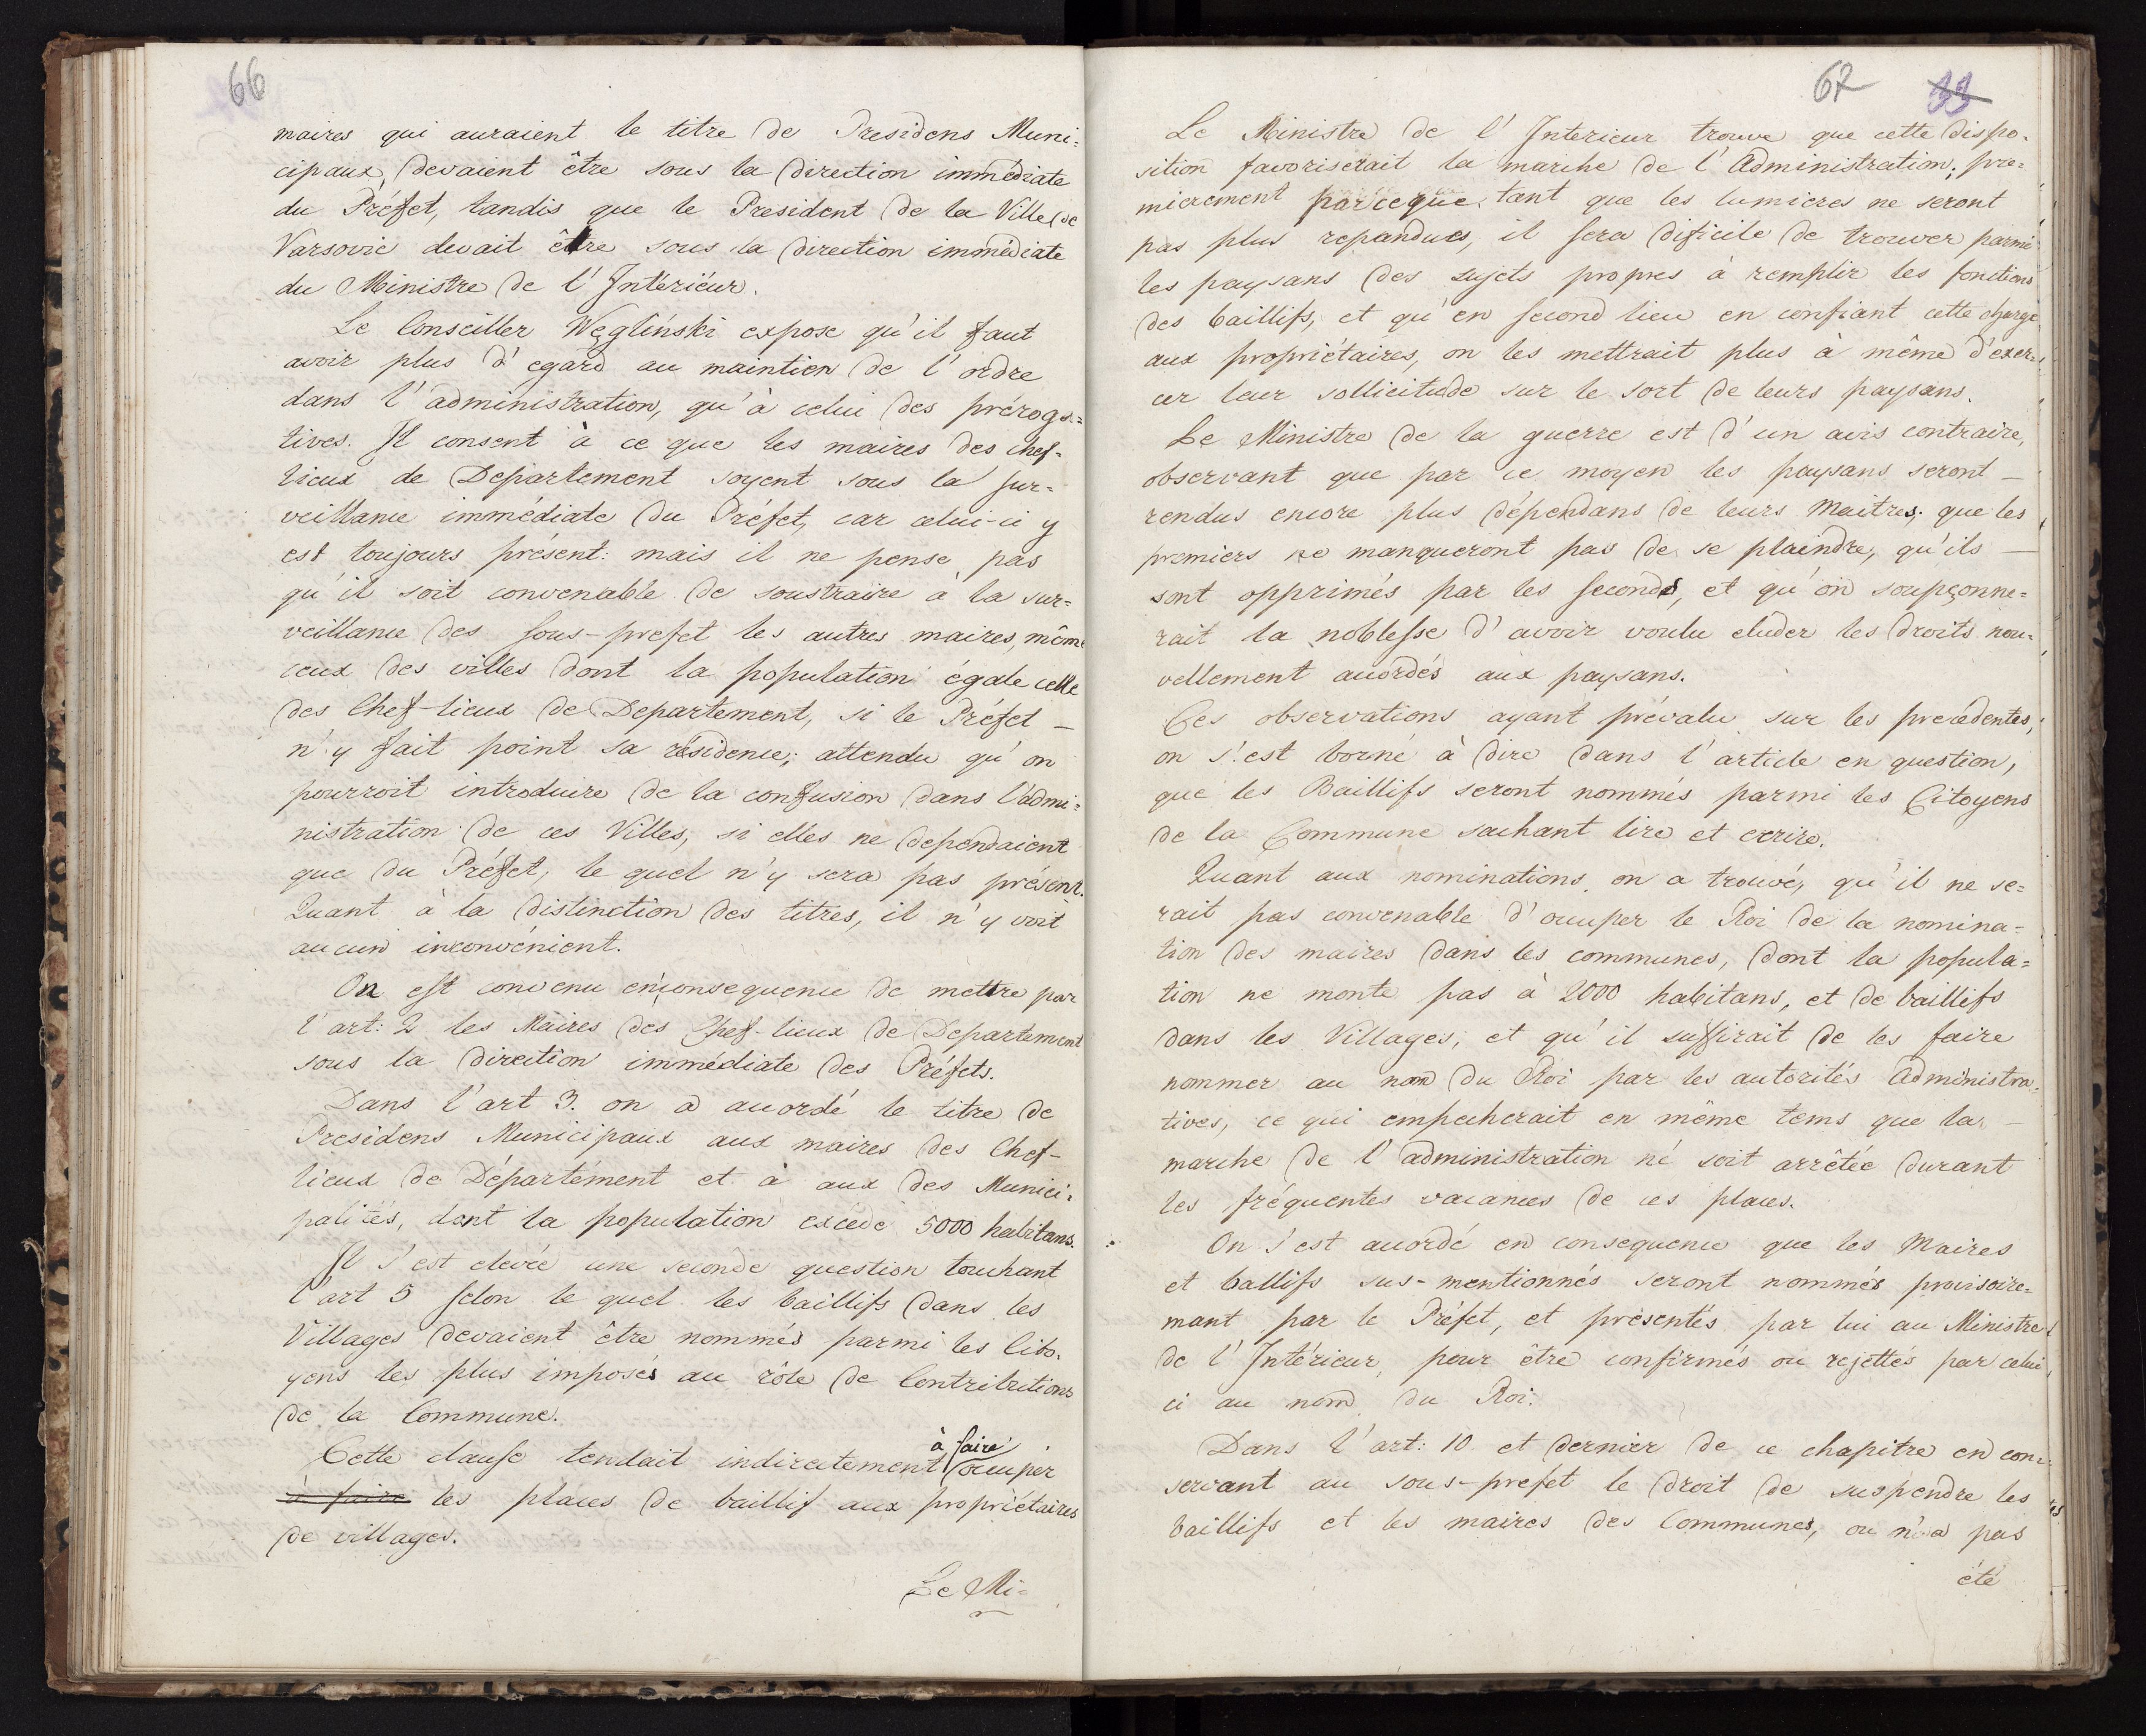 66
maires qui auraient le titre de Presidens Muni=
cipaux, devaient être sous la direction immediate
du Préfet, tandis que le President de la Ville de
Varsovie devait être sous la direction immédiate
du Ministre de l'Intérieur.
Le Conseiller Węgliński expose qu'il faut
avoir plus d'egard au maintien de l'ordre
dans l'administration, qu'à celui des préroga=
tives. Il consent à ce que les maires des chef=
lieux de Departement soyent sous la sur=
veillance immédiate du Préfet, car celui-ci y
est toujours présent: mais il ne pense pas
qu'il soit convenable de soustraire à la sur=
veillance des sous-prefet les autres maires, même
ceux des villes dont la population égale celle
des Chef-lieux de Departement, si le Préfet –
n'y fait point sa résidence; attendu qu'on
pourroit introduire de la confusion dans l'admi=
nistration de ces Villes, si elles ne dependaient
que du Préfet, le quel n'y sera pas présent.
Quant à la distinction des titres, il n'y voit
aucun inconvénient.
On est convenu enconsequence de mettre par
l'art: 2 les Maires des Chef-lieux de Departement
sous la direction immédiate des Préfets.
Dans l'art 3. on a accordé le titre de
Presidens Municipaux aux maires des Chef-
lieux de Département et à aux des Munici=
palités, dont la population excède 5000 habitans.
Il s'est elevée une seconde question touchant
l'art 5 selon le quel les baillifs dans les
Villages devaient être nommés parmi les Cito=
yens les plus imposés au rôle de Contributions
de la Commune.
à faire
Cette clause tendait indirectement occuper
à faire les places de baillif aux propriétaires
de villages.
Le Mi=
67 33
Le Ministre de l'Interieur trouve que cette dispo=
sition favoriserait la marche de l'Administration; pre=
mierement parceque tant que les lumieres ne seront
pas plus repandues, il sera dificile de trouver parmi
les paysans des sujets propres à remplir les fonctions
des baillifs, et qu'en second lieu en confiant cette charge
aux propriétaires, on les mettrait plus à même d'exer=
cer leur sollicitude sur le sort de leurs paysans.
Le Ministre de la guerre est d'un avis contraire,
observant que par ce moyen les paysans seront –
rendus encore plus dépendans de leurs Maitres; que les
premiers ne manqueront pas de se plaindre, qu'ils –
sont opprimés par les seconds, et qu'on soupçonne=
rait la noblesse d'avoir voulu eluder les droits nou=
vellement accordés aux paysans.
Ces observations ayant prévalu sur les precedentes,
on s'est borné à dire dans l'article en question,
que les Baillifs seront nommés parmi les Citoyens
de la Commune sachant lire et ecrire.
Quant aux nominations, on a trouvé, qu'il ne se=
rait pas convenable d'occuper le Roi de la nomina=
tion des maires dans les communes, dont la popula=
tion ne monte pas à 2000 habitans, et de baillifs
dans les Villages, et qu'il suffirait de les faire
nommer au nom du Roi par les autorités Administra=
tives, ce qui empecherait en même tems que la –
marche de l'administration né soit arrêtée durant
les fréquentes vacances de ces places.
On s'est accordé en consequence que les Maires
et ballifs sus-mentionnés seront nommés provisoire=
mant par le Préfet, et présentés par lui au Ministre
de l'Intérieur, pour être confirmés ou rejettés par celui
ci au nom du Roi.
Dans l'art: 10 et dernier de ce chapitre en con=
servant au sous-prefet le droit de suspendre les
baillifs et les maires des Communes, on n'a pas
été